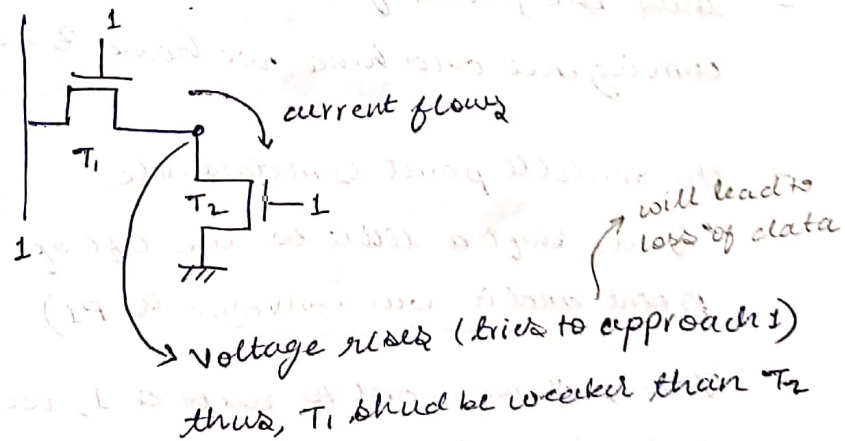 1
current flows
T1
T2
1
1
will lead to
loss of data
voltage rises (tries to approach 1)
thus, T1 shud be weaker than T2